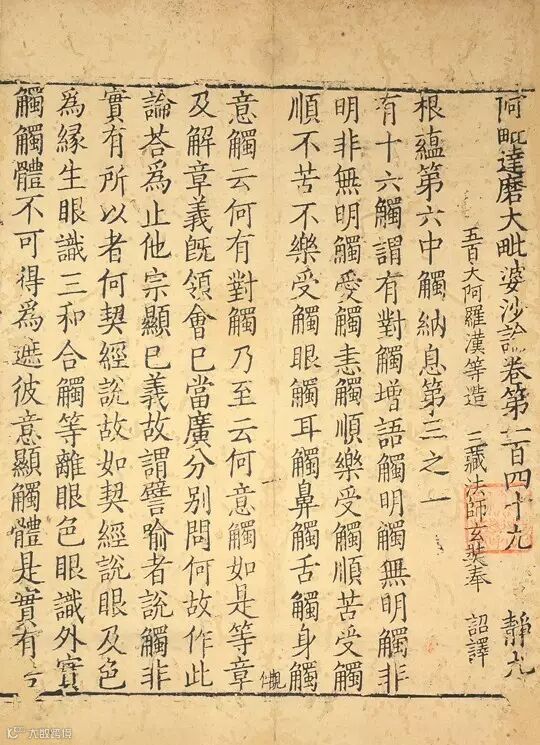 阿毗達磨大毗婆沙論卷第一百四十九 靜九
五百大阿羅漢等造 三藏法師玄奘奉 詔譯
根蘊第六中觸納息第三之一
有十六觸謂有對觸增語觸明觸無明觸非
明非無明觸愛觸恚觸順樂受觸順苦受觸
順不苦不樂受觸眼觸耳觸鼻觸舌觸身觸
意觸云何有對觸乃至云何意觸如是等章
及解章義既領會已當廣分別問何故作此
論荅為止他宗顯已義故謂譬喻者說觸非
實有所以者何契經說故如契經說眼及色
為緣生眼識三和合觸等離眼色眼識外實
觸觸體不可得為遮彼意顯觸體是實有
大叔跨境